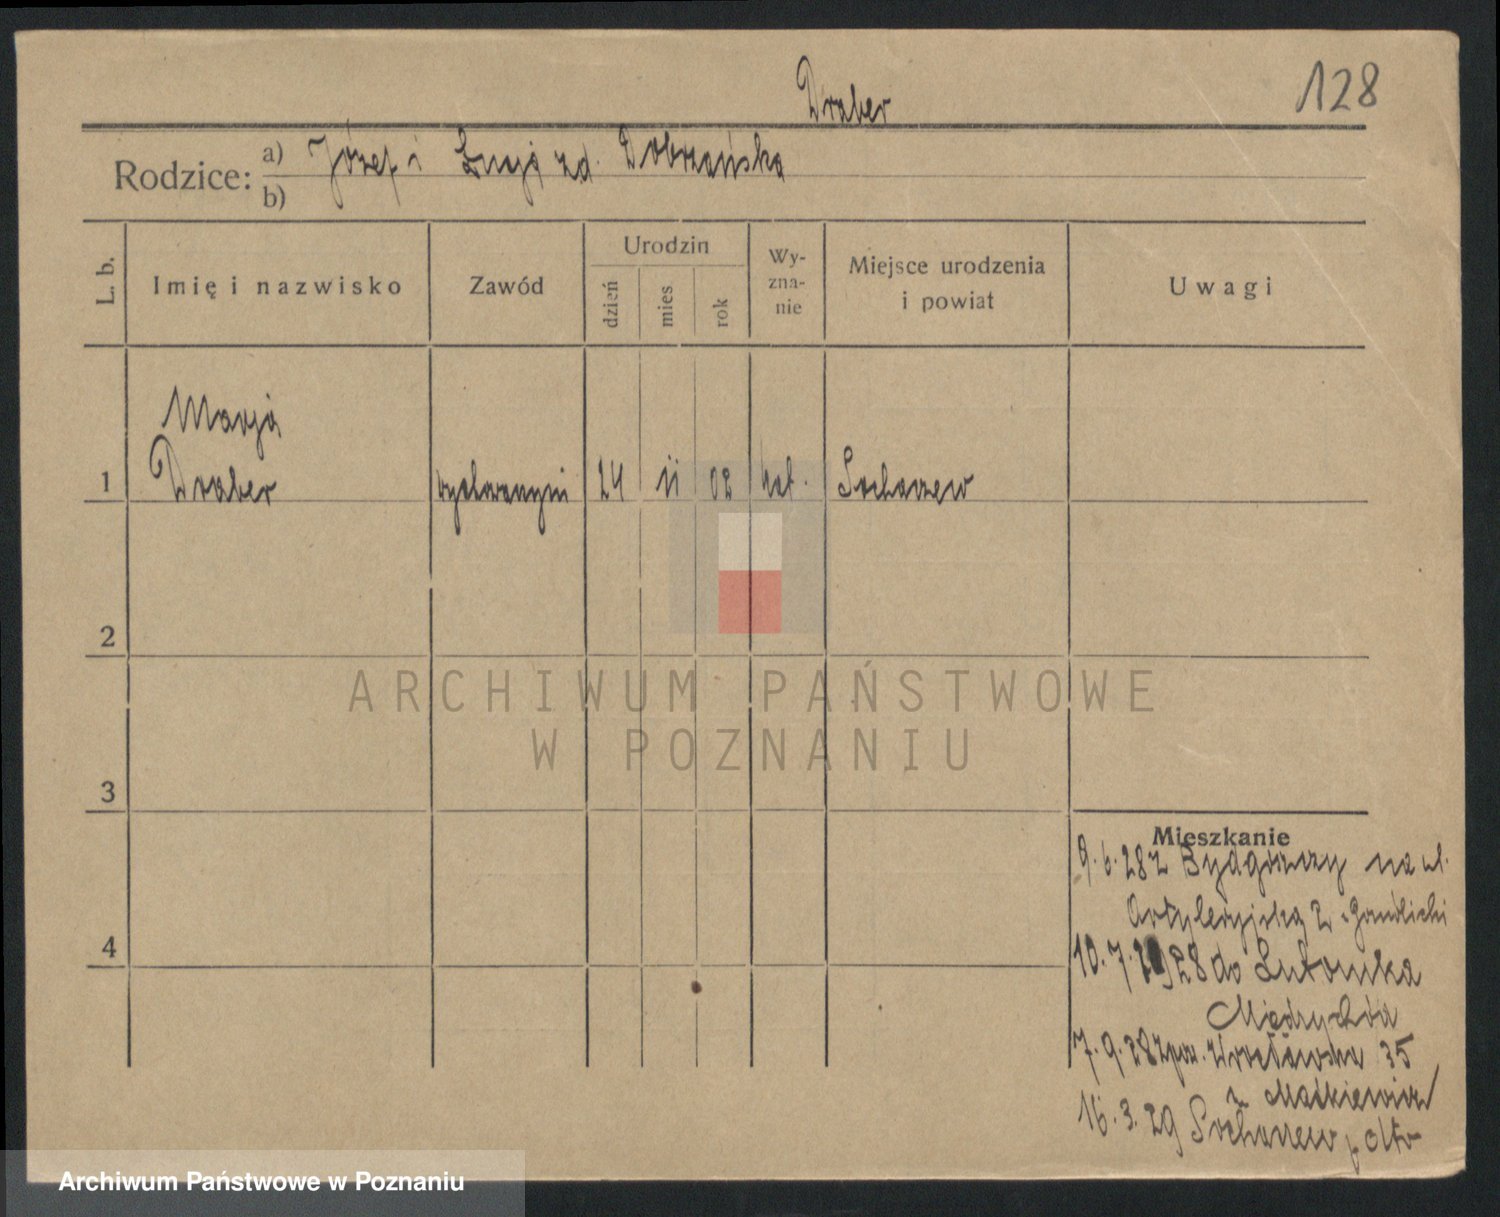 128
Draber
Rodzice: a) Józef i Łucja zd. Dobrzańska
b)
L. b.
Imię i nazwisko
Zawód
Urodzin
dzień
mies
rok
Wy-
zna-
nie
Miejsce urodzenia
i powiat
Uwagi
Marja
1 Draber 24 11 02 kat. Sochaczew
2
3
4
Mieszkanie
9.6.28 z Bydgoszczy na ul.
Artyleryjską 2
10.7.1928 do Lutomka
Międzychód
7.9.28 Wrocławska 35
z Maćkiewicz
16.3.29 Sochaczew
ARCHIWUM PAŃSTWOWE
W POZNANIU
Archiwum Państwowe w Poznaniu